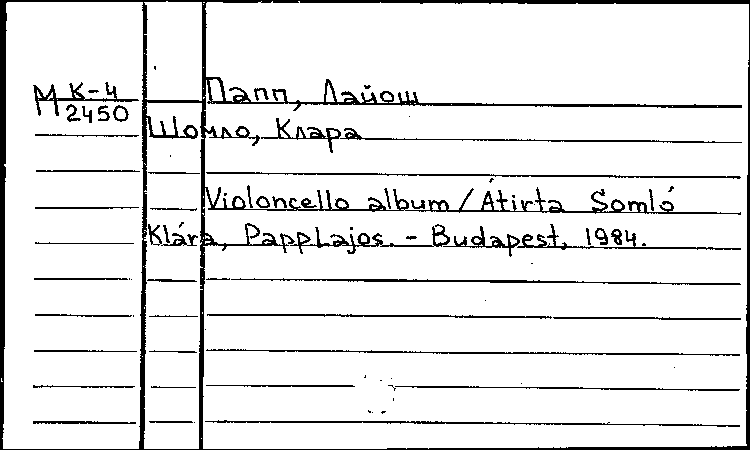 М К-4
2450
Папп, Лайош
Шомло, Клара
Violoncello album / Átirta Somló
Klára, Papp Lajos. - Budapest, 1984.